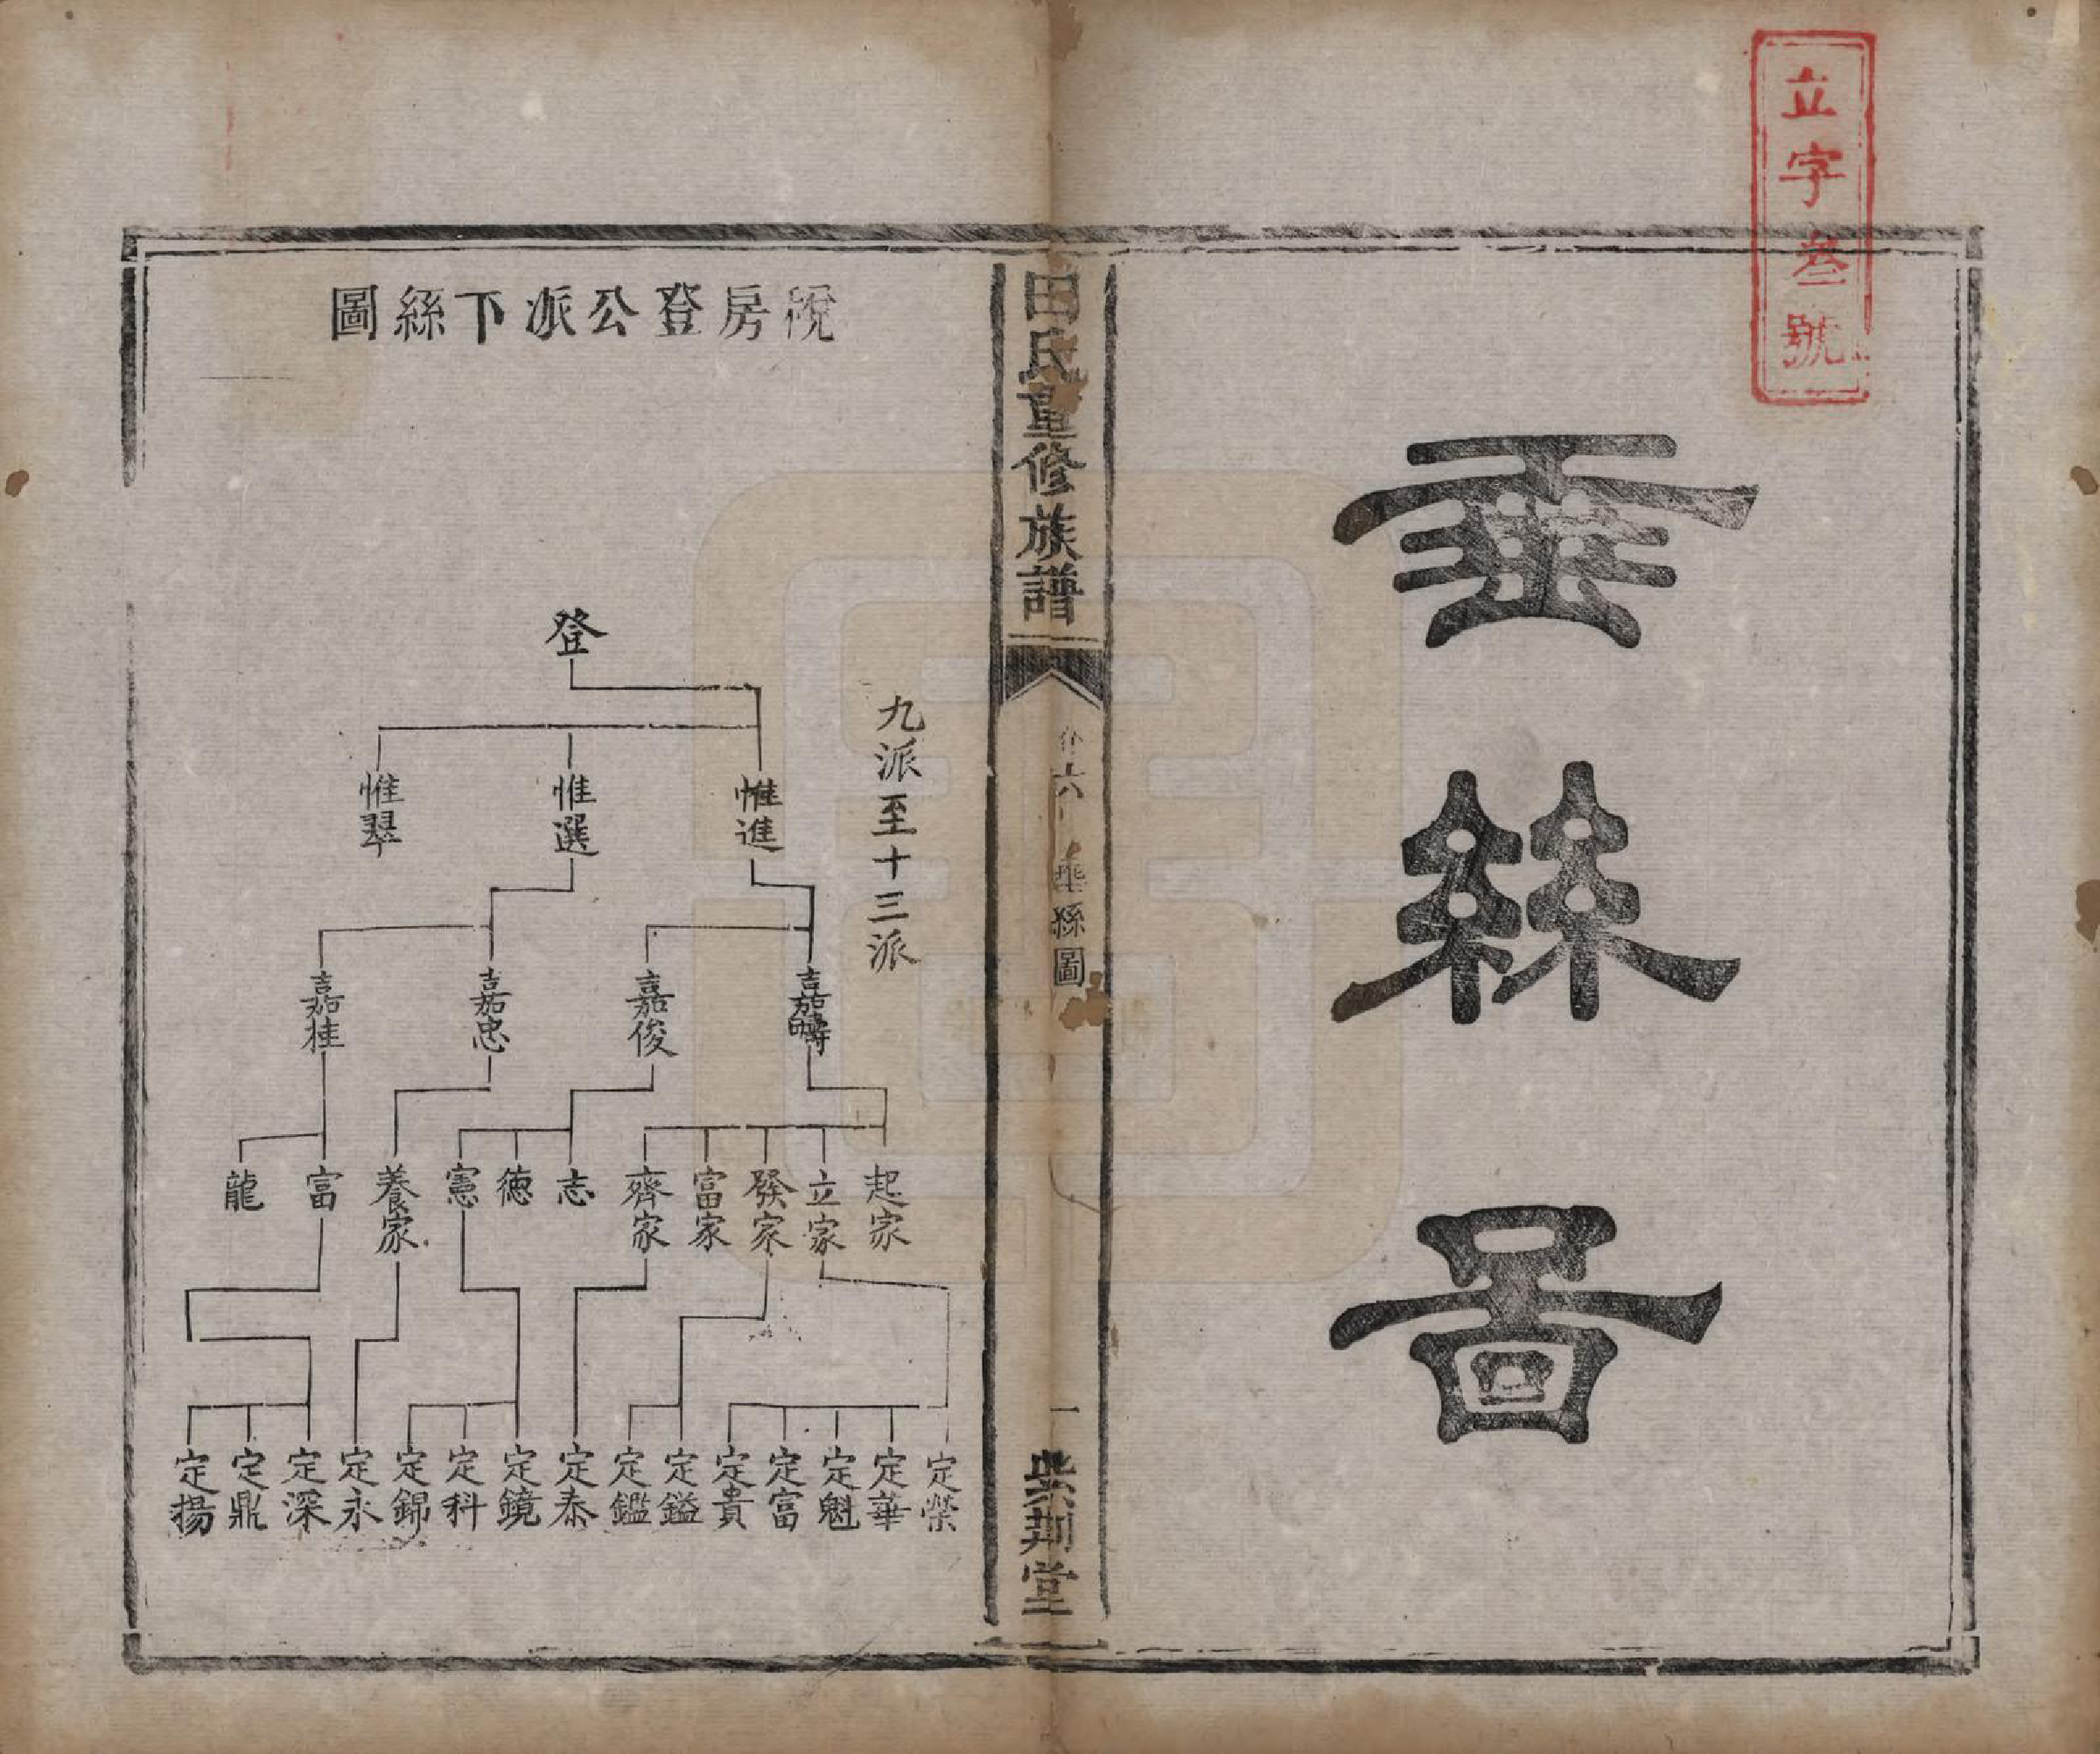 立字叄號
垂絲圖
田氏重修族譜
卷六
垂絲圖
一
紫荆堂
稅房登公派下絲圖
九派至十三派
登
惟進
惟選
惟翠
嘉疇
嘉俊
嘉忠
嘉桂
起家
立家
發家
富家
齊家
志
德
憲
養家
富
龍
定榮
定華
定魁
定富
定貴
定鎰
定鑑
定泰
定鏡
定科
定錦
定永
定深
定鼎
定揚